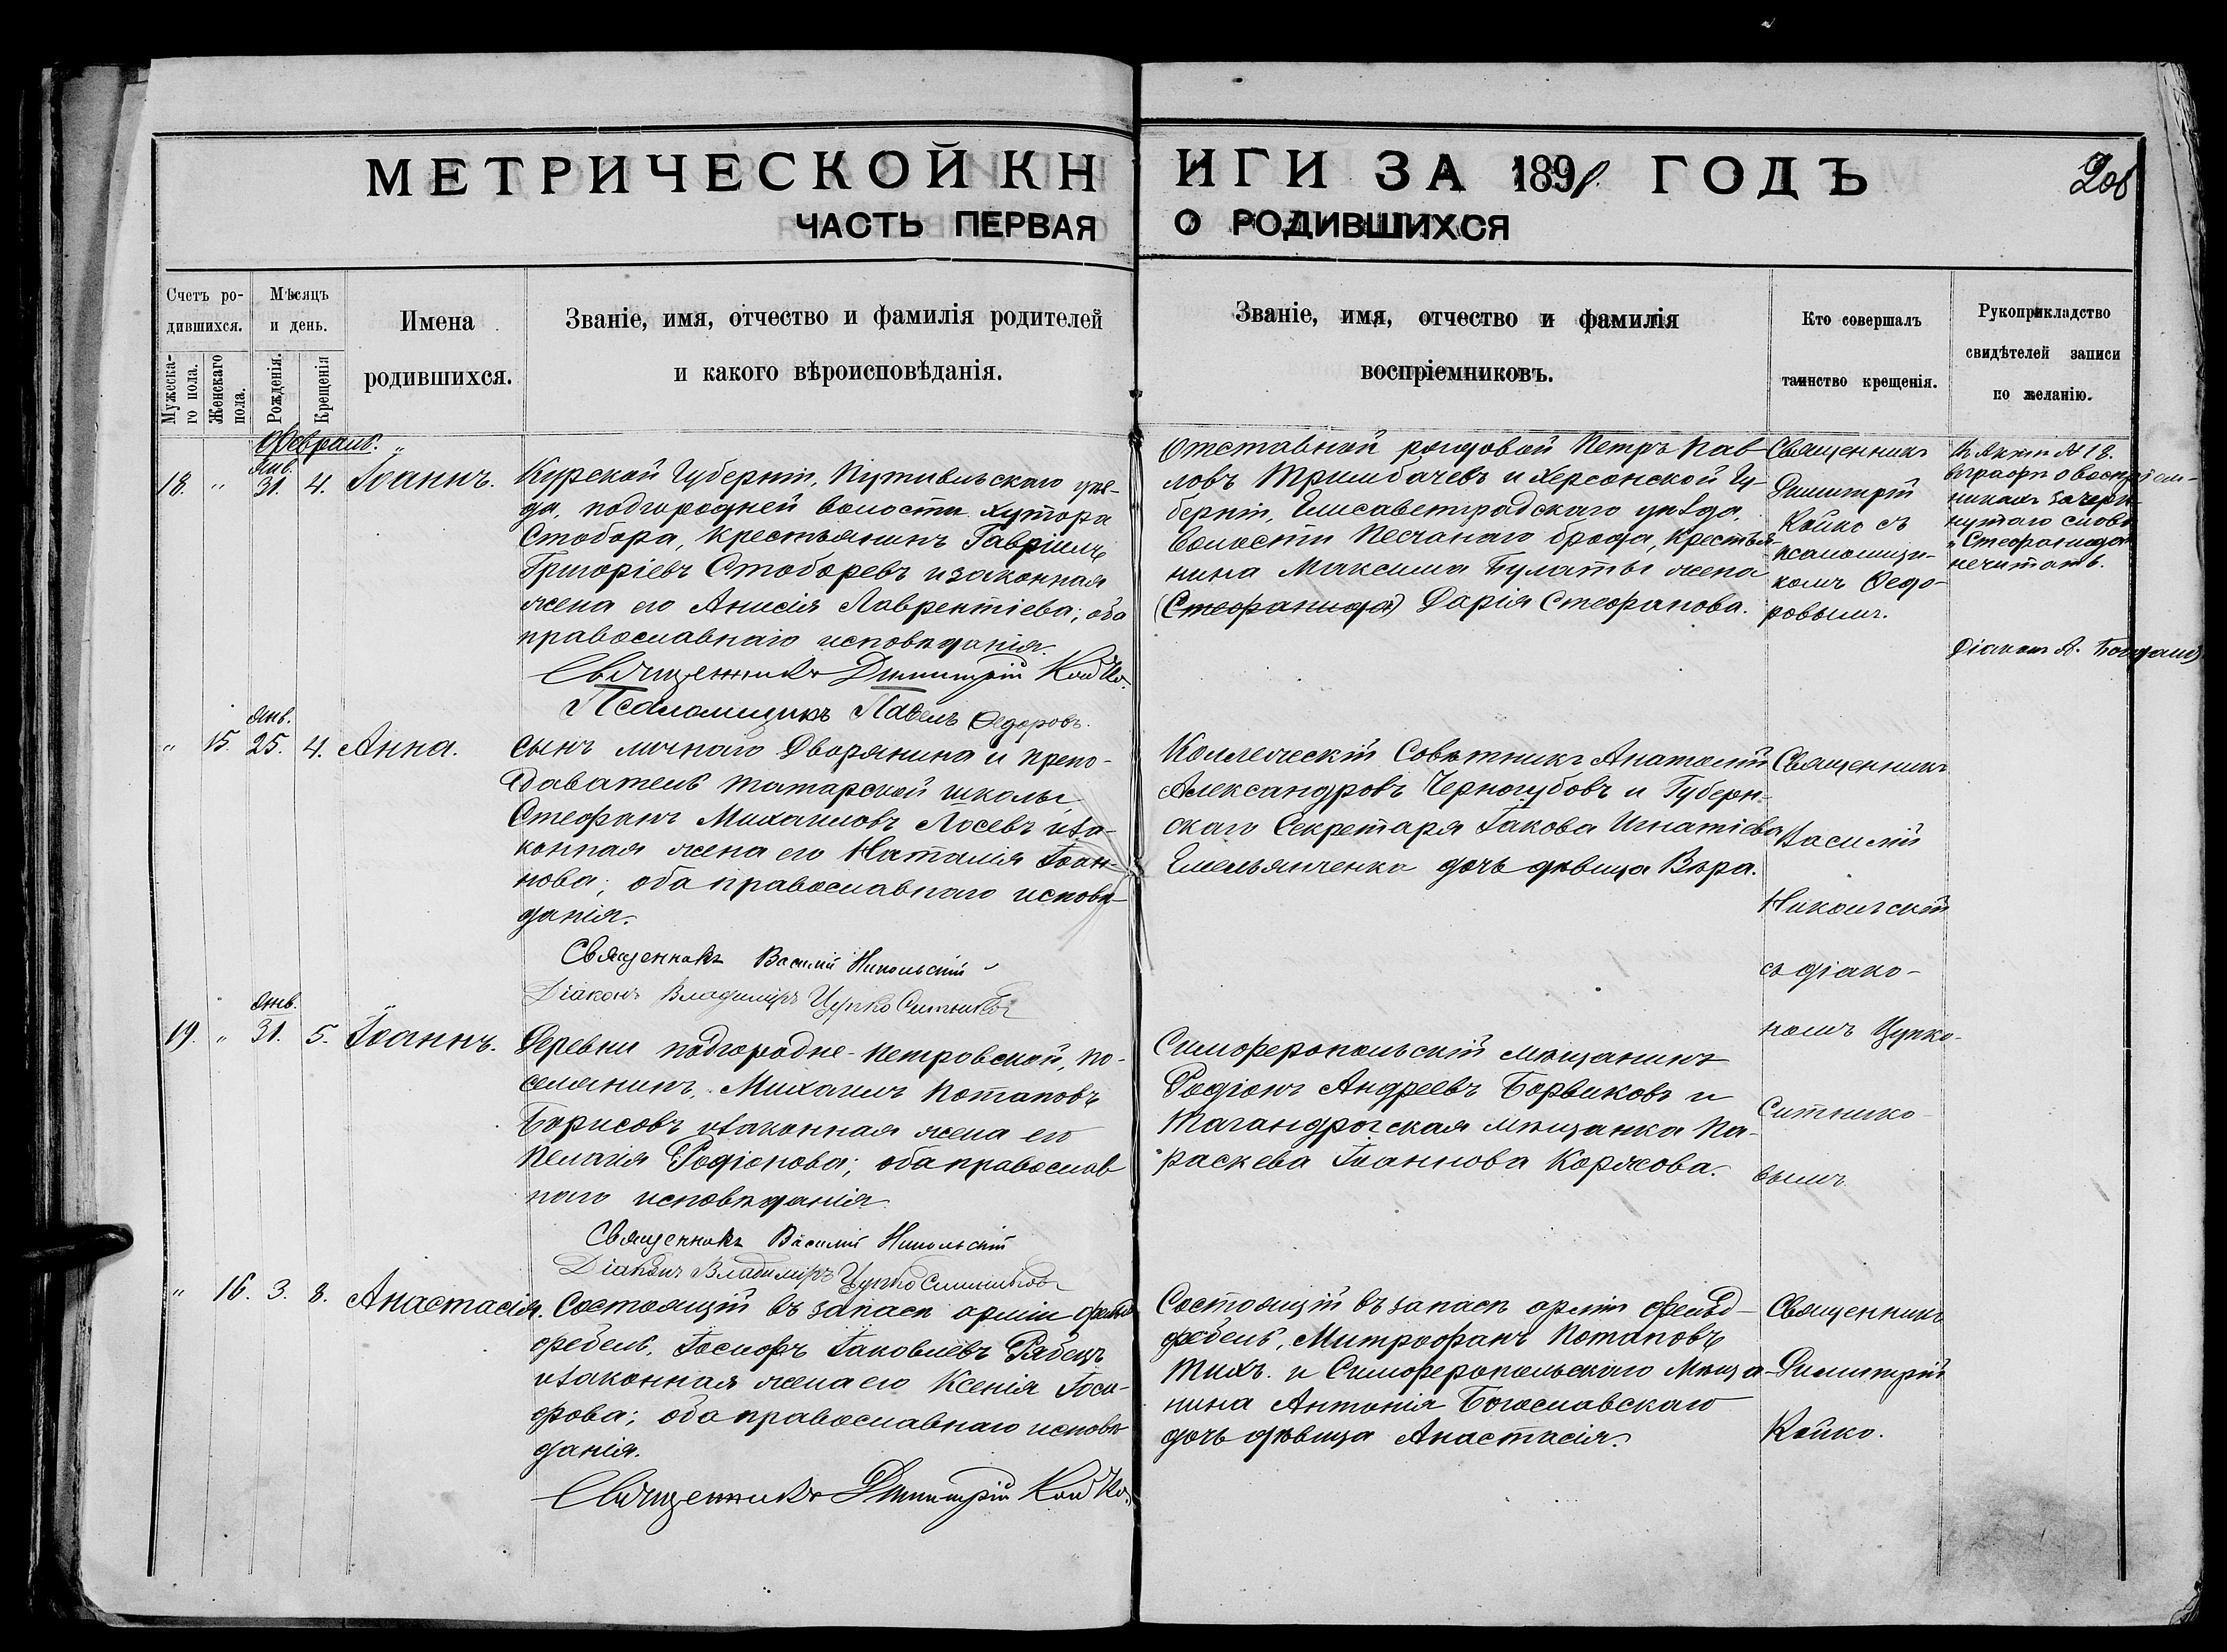 МЕТРИЧЕСКОЙ КНИГИ ЗА 1891 ГОДЪ
ЧАСТЬ ПЕРВАЯ О РОДИВШИХСЯ
Счетъ ро-
дившихся.
Мужеска-
го пола.
Женскаго
пола.
Мѣсяцъ
и день.
Рожденія.
Крещенія
Имена
родившихся.
Званіе, имя, отчество и фамилія родителей
и какого вѣроисповѣданія.
Званіе, имя, отчество и фамилія
воспріемниковъ.
Кто совершалъ
таинство крещенія.
Рукоприкладство
свидѣтелей записи
по желанію.
Февраль.
Янв.
18. " 31. 4. Іоаннъ.
Курской Губерніи, Путивльскаго уѣз-
да, подгородней волости хутора
Стобора, крестьянинъ Гавріилъ
Григоріевъ Стоборевъ и законная
жена его Анисія Лаврентіева; оба
православнаго исповѣданія.
Священникъ Димитрій Койко.
Псаломщикъ Павелъ Федоровъ.
Отставной рядовой Петръ Пав
ловъ Тришбачевъ и Херсонской Гу-
берніи, Елисаветградскаго уѣзда,
волости Песчанаго брода, крестья-
нина Максима Булаты жена
(Стефанида) Дарія Стефанова.
Священникъ
Димитрій
Койко съ
псаломщи-
комъ Федо-
ровымъ.
Въ актѣ № 18.
въ графѣ о воспріем-
никахъ зачерк-
нутаго слова
"Стефанида"
нечитать.
Діаконъ А.
Янв.
" 15. 25. 4. Анна.
Сынъ личнаго Дворянина и препо-
даватель татарской школы
Стефанъ Михаиловъ Лосевъ и за-
конная жена его Наталія Іоан-
нова; оба православнаго исповѣ-
данія.
Священникъ Василій Никольскій
Діаконъ Владиміръ Цупко Ситниковъ
Коллежскій Совѣтникъ Анатолій
Александровъ Черногубовъ и Губерн-
скаго Секретаря Іакова Игнатіева
Емельянченка дочь дѣвица Вѣра.
Священникъ
Василій
Никольскій
съ діако-
номъ Цупко-
Ситнико-
вымъ
Янв.
19. " 31. 5. Іоаннъ.
Деревни подгородне-Петровской, по-
селянинъ, Михаилъ Потаповъ
Борисовъ и законная жена его
Пелагія Родіонова; оба православ
наго исповѣданія.
Священникъ Василій Никольскій
Діаконъ Владиміръ Цупко Ситниковъ
Симферопольскій мѣщанинъ
Родіонъ Андреевъ Борвиковъ и
Таганрогская мѣщанка Па-
раскева Іоаннова Коржова.
" 16. 3. 8. Анастасія.
Состоящій въ запасѣ арміи фельд
фебель, Іосифъ Іаковлевъ Рябецъ
и законная жена его Ксенія Іоси-
фова; оба православнаго исповѣ
данія.
Священникъ Димитрій Койко.
Состоящій въ запасѣ арміи фельд-
фебель, Митрофанъ Потаповъ
Тихъ. и Симферопольскаго Мѣща-
нина Антонія Богославскаго
дочь дѣвица Анастасія.
Священникъ
Димитрій
Койко.